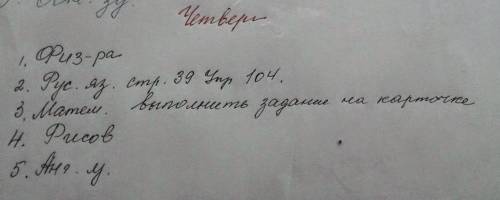 Четверг
1. Физ-ра
2. Рус. яз. стр. 39 Упр 104.
3. Матем. выполнить задание на карточке
4. Рисов
5. Анг. у.